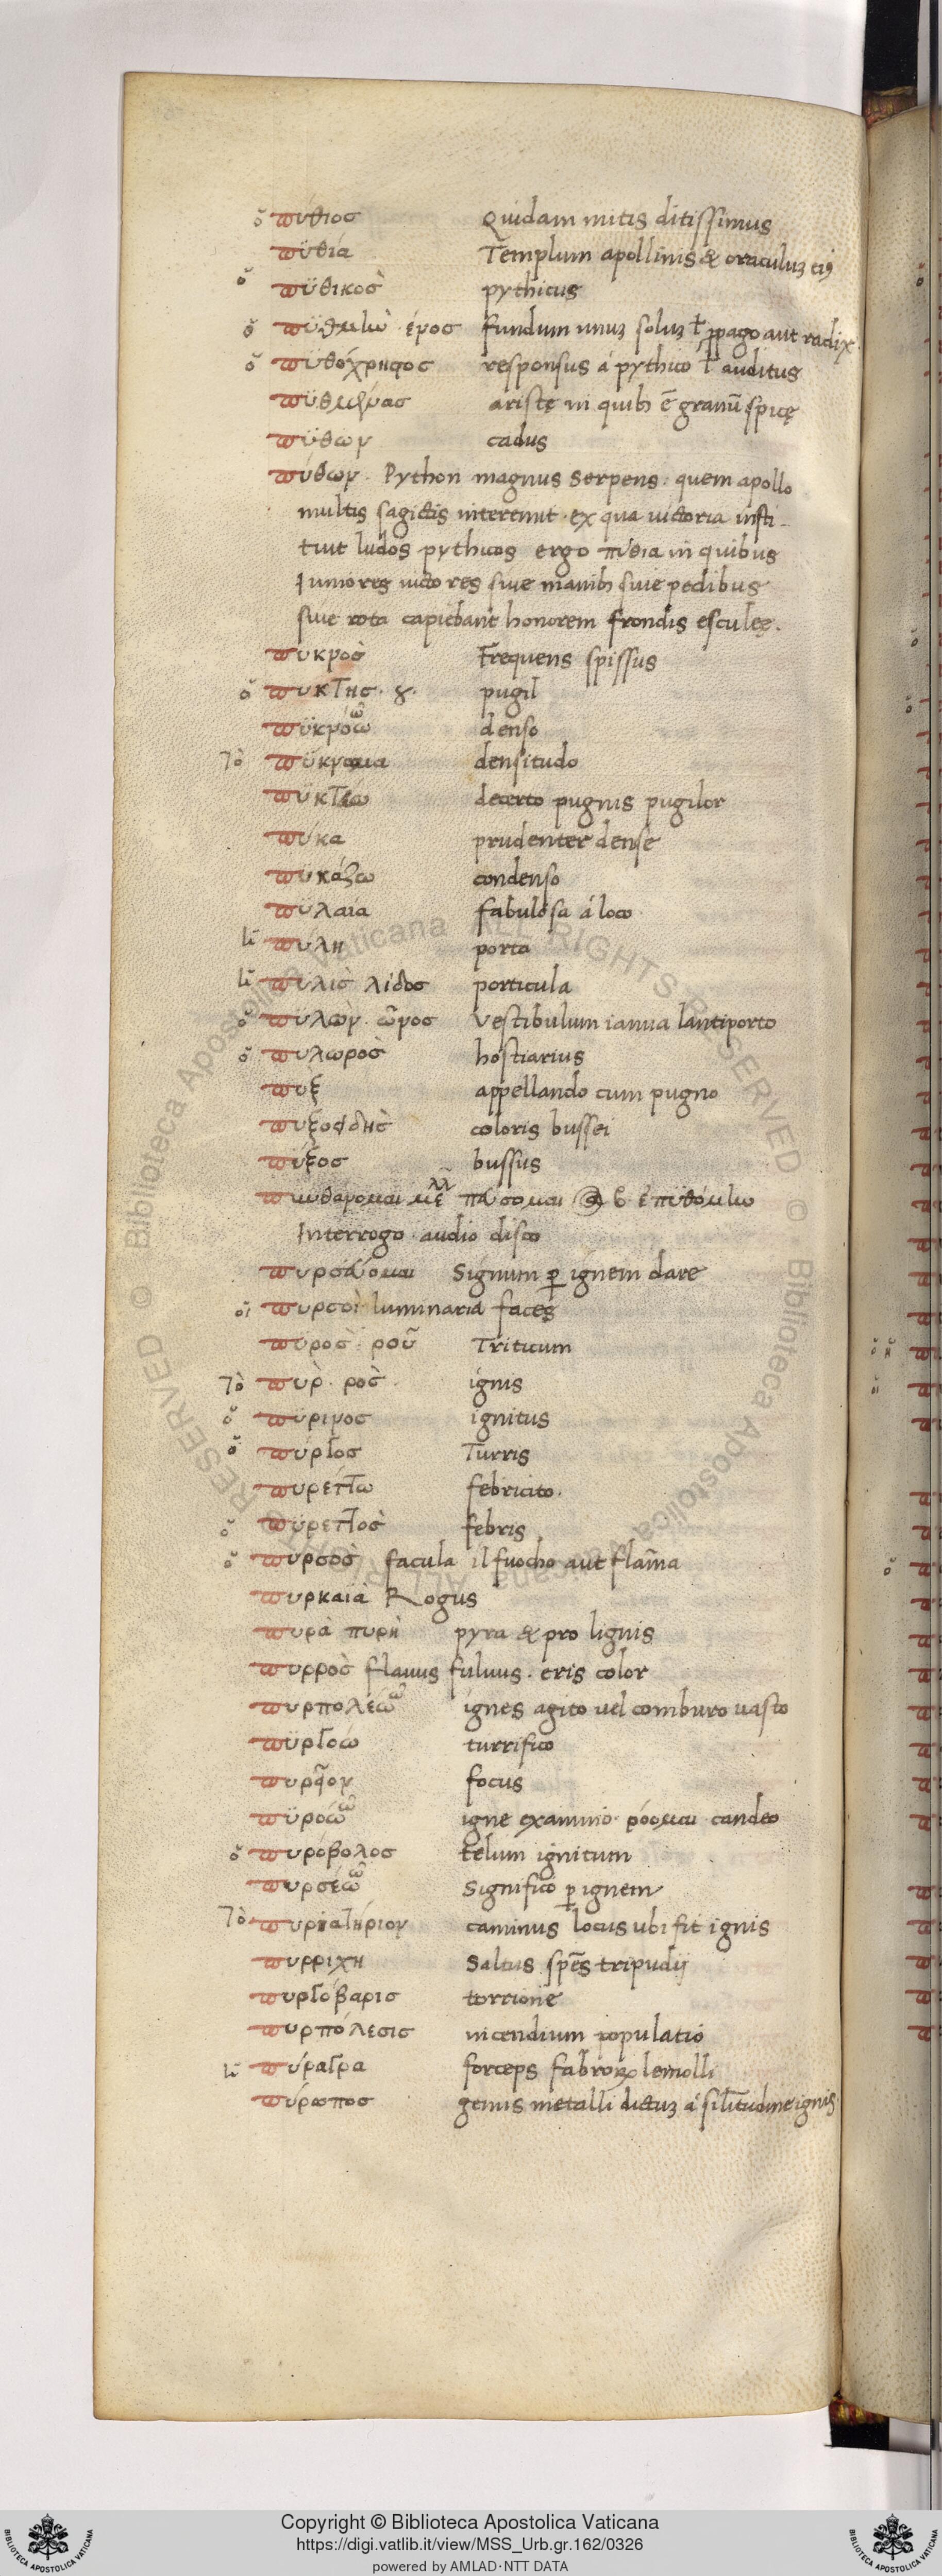 ὁ πυθιος Quidam mitis ditissimus
πϋθία Templum apollinis & oraculuʒ eiꝰ
ὁ πϋθικοσ̀ pythicus
ὁ πϋθμὴν · ένος fundum unuʒ soluʒ ł ꝓpago aut radix ·
ὁ πϋθόχρηςος responsus á pythico ł auditus
aristę in quibꝫ ē granū spicę
πϋθων cadus
πύθων · Python magnus serpens · quem apollo
multis sagictis interemit · ex qua uictoria insti-
tuit ludos pythicos ergo πύθια in quibus
Iuniores uictores siue manibꝫ siue pedibus
siue rota capiebant honorem frondis esculeę.
πυκνοσ̀ Frequens spissus
ὁ πυκτης · ȣ · pugil
πϋκνόω ῶ denso
τὸ πϋκνωμα densitudo
πυκτέω decerto pugnis pugilor
πύκα prudenter dense
πϋκάζω condenso
πϋλαία fabulosa á loco
ἡ πύλη porta
ἡ πυλισ̀ λίδος porticula
ὁ πϋλων̀ · ῶνος Vestibulum ianua lantiporto
ὁ πυλωροσ̀ hostiarius
πυξ appellando cum pugno
πυξοειδησ̀ coloris bussei
πύξος bussus
πυνθανομαι μελλ πέυσομαι β ἐπϋθόμην
Interrogo · audio disco
πυρσέυομαι Signum ꝑ ignem dare
οἱ πυρσοὶ luminaria faces
πυρος · ροῦ Triticum
τὸ πυρ̀ · ροσ̀ · ignis
ὁ πϋρινος ignitus
ὁ πύργος Turris
πυρέττω febricito ·
ὁ πϋρετοσ̀ febris
ὁ πυρσοσ̀ facula il fuocho aut flama
πυρκαϊὰ Rogus
πυρὰ πυρὴ pyra & pro lignis
πυρροσ̀ flauus fuluus · eris color
πυρπολέω ῶ ignes agito uel comburo uasto
πϋργόω turrifico
focus
πϋρόω ῶ igne examino · ρόομαι candeo
ὁ πυρόβολος telum ignitum
πυρσέω ῶ Significo ꝑ ignem
τὸ πυριατήριον caminus locus ubi fit ignis
πυρριχη Saltus spēs tripudij
πυργόβαρις torrione
πυρπόλεσις incendium populatio
ἡ πύραγρα forceps fabroꝝ lemolli
πύρωπος genus metalli dictuʒ á silitudine ignis
Copyright © Biblioteca Apostolica Vaticana
https://digi.vatlib.it/view/MSS_Urb.gr.162/0326
powered by AMLAD·NTT DATA